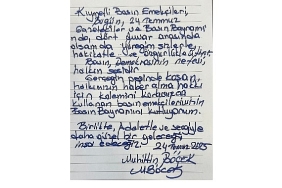 Kıymetli Basın Emekçileri,
Bugün, 24 Temmuz
Gazeteciler ve Basın Bayramı
nda, dört duvar arasında
olsam da, yüreğim sizlerle,
hakikatle ve
Basın, Demokrasinin nefesi,
halkın sesidir.
Gerçeğin peşinde koşan,
halkımızın haber alma hakkı
için kalemini korkusuzca
kullanan basın emekçilerimizin
Basın Bayramını kutluyorum.
Birlikte, Adaletle ve sevgiyle
daha güzel bir geleceği
inşa edeceğiz.
24 Temmuz 2025
Muhittin Böcek
MBöcek